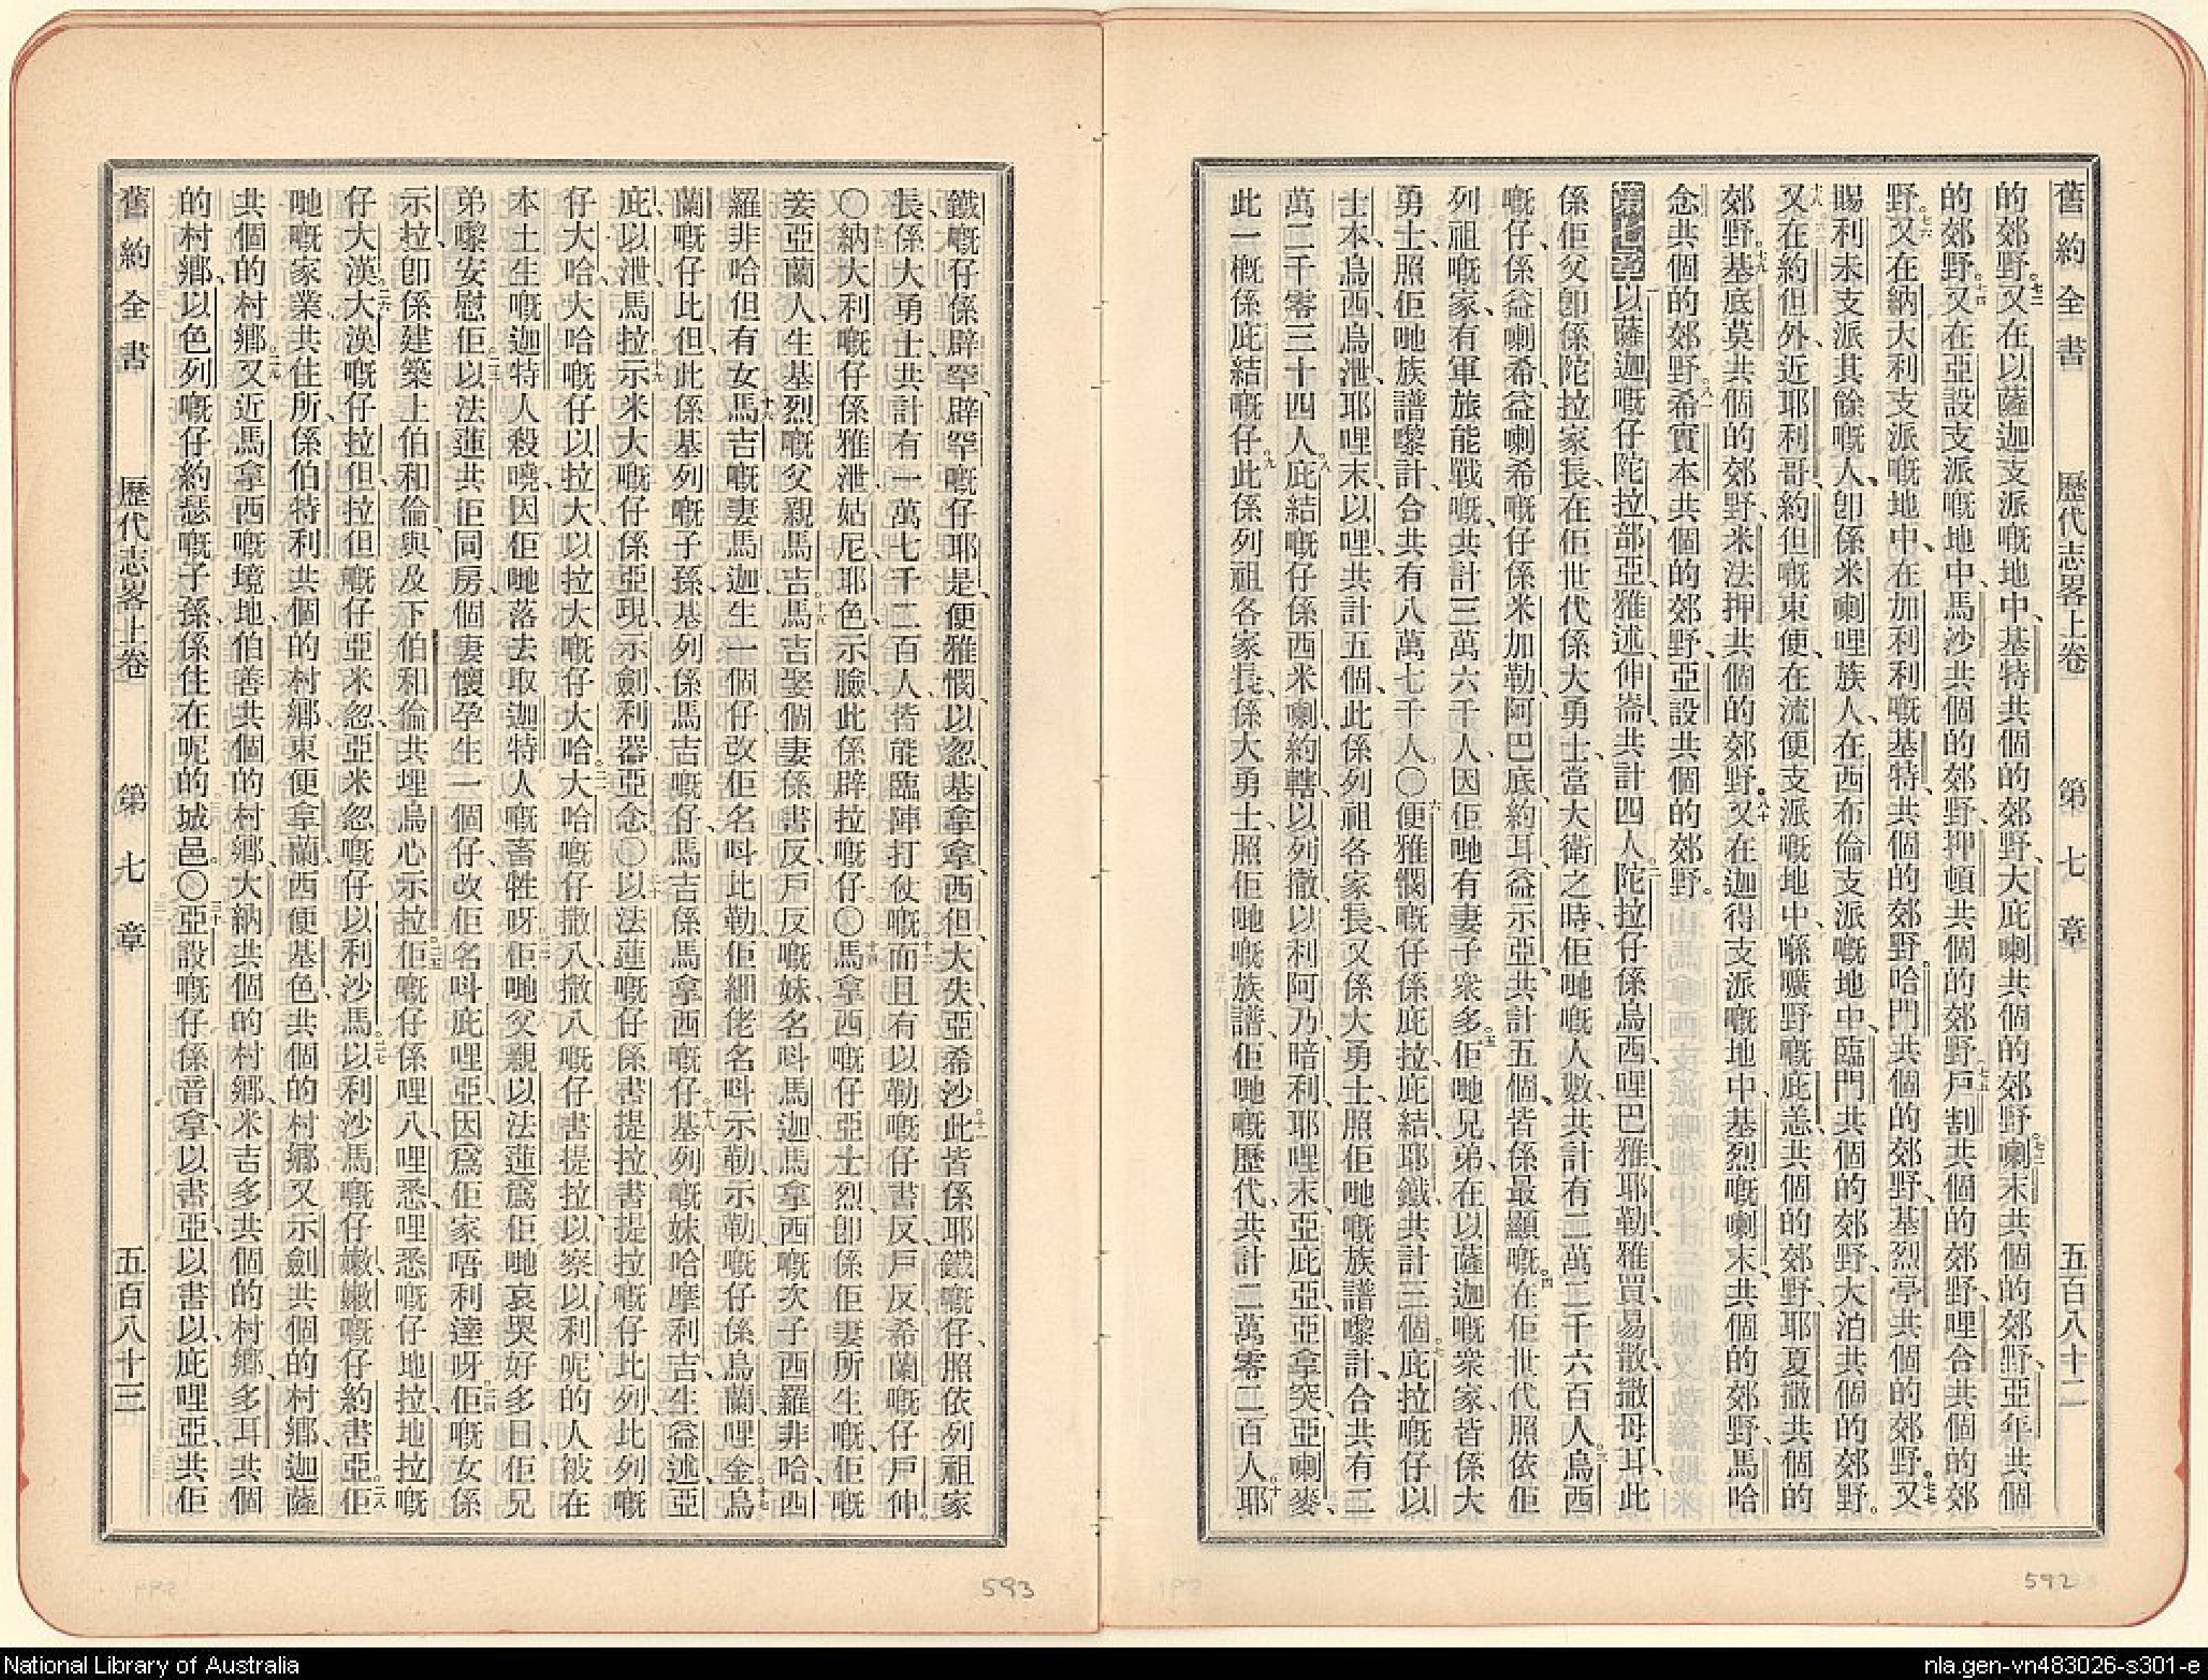 舊約全書　歷代志畧上卷　第七章　五百八十二
的郊野、七二又在以薩迦支派嘅地中、基特共個的郊野、大庇喇共個的郊野、七三喇末共個的郊野、亞年共個
的郊野、七四又在亞設支派嘅地中、馬沙共個的郊野、押頓共個的郊野、七五戶割共個的郊野、哩合共個的郊
野、七六又在納大利支派嘅地中、在加利利嘅基特、共個的郊野、哈門共個的郊野、基烈亭共個的郊野、七七又
賜利未支派其餘嘅人、卽係米喇哩族人、在西布倫支派嘅地中、臨門共個的郊野、大泊共個的郊野。
七八又在約但外、近耶利哥、約但嘅東便、在流便支派嘅地中、喺曠野嘅庇恙、共個的郊野、耶夏撒共個的
郊野、七九基底莫共個的郊野、米法押共個的郊野、八十又在迦得支派嘅地中、基烈嘅喇末、共個的郊野、馬哈
念共個的郊野、八一希實本共個的郊野、亞設共個的郊野。
第七章一以薩迦嘅仔陀拉、部亞、雅述、伸崙、共計四人。二陀拉仔係烏西、哩巴雅、耶勒、雅買、易散、撒母耳、此
係佢父卽係陀拉家長、在佢世代係大勇士、當大衛之時、佢哋嘅人數、共計有二萬二千六百人。三烏西
嘅仔、係益喇希、益喇希嘅仔係米加勒、阿巴底、約耳、益示亞、共計五個、皆係最顯嘅。四在佢世代照依佢
列祖嘅家、有軍旅能戰嘅、共計三萬六千人、因佢哋有妻子衆多。五佢哋兄弟、在以薩迦嘅衆家、皆係大
勇士、照佢哋族譜嚟計、合共有八萬七千人。〇六便雅憫嘅仔係庇拉、庇結、耶鐵、共計三個。七庇拉嘅仔以
士本、烏西、烏泄、耶哩末、以哩、共計五個、此係列祖各家長、又係大勇士、照佢哋嘅族譜嚟計、合共有二
萬二千零三十四人。八庇結嘅仔係西米喇、約轄、以列撒、以利阿乃、暗利、耶哩末、亞庇亞、亞拿突、亞喇麥、
此一概係庇結嘅仔。九此係列祖各家長、係大勇士、照佢哋嘅族譜、佢哋嘅歷代、共計二萬零二百人。十耶
鐵嘅仔係辟罕、辟罕嘅仔耶是、便雅憫、以忽、基拿拿、西但、大失、亞希沙。十一此皆係耶鐵嘅仔、照依列祖家
長、係大勇士、共計有一萬七千二百人、皆能臨陣打仗嘅。十二而且有以勒嘅仔書反、戶反、希蘭嘅仔戶伸。
〇十三納大利嘅仔係雅泄、姑尼、耶色、示臉、此係辟拉嘅仔。〇十四馬拿西嘅仔亞士烈、卽係佢妻所生嘅、佢嘅
妾亞蘭人、生基烈嘅父親馬吉。十五馬吉娶個妻、係書反戶反嘅妹、名呌馬迦、馬拿西嘅次子西羅非哈、西
羅非哈但有女、十六馬吉嘅妻馬迦生一個仔、改佢名呌此勒、佢細佬名呌示勒、示勒嘅仔係烏蘭、哩金。十七烏
蘭嘅仔比但、此係基列嘅子孫、基列係馬吉嘅仔、馬吉係馬拿西嘅仔、十八基列嘅妹哈摩利吉、生益述、亞
庇以泄、馬拉。十九示米大嘅仔係亞現、示劍、利器、亞念。〇二十以法蓮嘅仔係書提拉、書提拉嘅仔比列、比列嘅
仔大哈、大哈嘅仔以拉大、以拉大嘅仔大哈。二一大哈嘅仔撒八、撒八嘅仔書提拉、以察、以利、呢的人被在
本土生嘅迦特人殺曉、因佢哋落去取迦特人嘅畜牲呀。二二佢哋父親以法蓮、爲佢哋哀哭好多日、佢兄
弟嚟安慰佢。二三以法蓮共佢同房、個妻懷孕生一個仔、改佢名呌庇哩亞、因爲佢家唔利達呀。二四佢嘅女係
示拉、卽係建築上伯和倫、與及下伯和倫、共埋烏心示拉。二五佢嘅仔係哩八、哩悉、哩悉嘅仔地拉、地拉嘅
仔大漢。二六大漢嘅仔拉但、拉但嘅仔亞米忽、亞米忽嘅仔以利沙馬。二七以利沙馬嘅仔嫩、嫩嘅仔約書亞。二八佢
哋嘅家業、共住所、係伯特利共個的村鄉、東便拿蘭、西便基色、共個的村鄉、又示劍共個的村鄉、迦薩
共個的村鄉。二九又近馬拿西嘅境地、伯善共個的村鄉、大納共個的村鄉、米吉多共個的村鄉、多耳共個
的村鄉、以色列嘅仔約瑟嘅子孫、係住在呢的城邑。〇三十亞設嘅仔係音拿、以書亞、以書以、庇哩亞、共佢
舊約全書　歷代志畧上卷　第七章　五百八十三
592
593
National Library of Australia
nla.gen-vn483026-s301-e